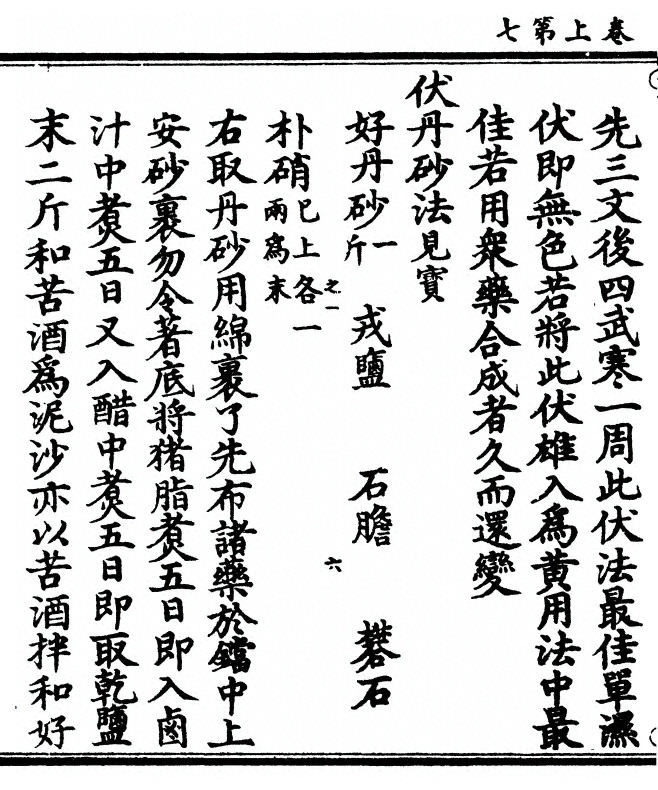 卷上第七
先三文後四武寒一周此伏法最佳單濕
伏即無色若將此伏雄入為黃用法中最
佳若用衆藥合成者久而還變
伏丹砂法見寳
好丹砂一斤　戎鹽　石膽　礬石
朴硝已上各一兩為末
之一
六
右取丹砂用綿裹了先布諸藥於鐺中上
安砂裹勿令著底將猪脂煑五日即入鹵
汁中煑五日又入醋中煑五日即取乾鹽
末二斤和苦酒為泥沙亦以苦酒拌和好